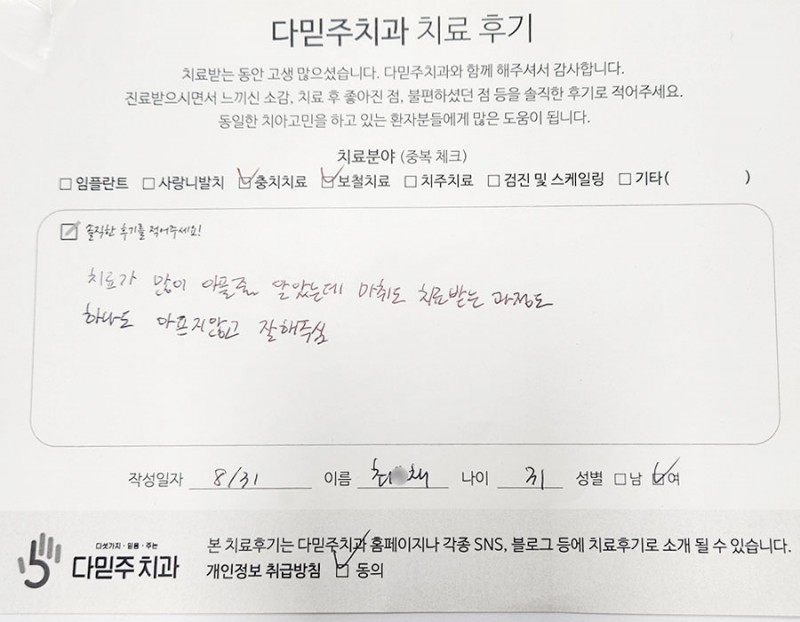 다믿주치과 치료 후기
치료받는 동안 고생 많으셨습니다. 다믿주치과와 함께 해주셔서 감사합니다.
진료받으시면서 느끼신 소감, 치료 후 좋아진 점, 불편하셨던 점 등을 솔직한 후기로 적어주세요.
동일한 치아고민을 하고 있는 환자분들에게 많은 도움이 됩니다.
치료분야 (중복 체크)
□ 임플란트 □ 사랑니발치 ☑ 충치치료 ☑ 보철치료 □ 치주치료 □ 검진 및 스케일링 □ 기타( )
솔직한 후기를 적어주세요!
치료가 많이 아플줄 알았는데 마취도 치료받는 과정도
하나도 아프지않고 잘해주심
작성일자 8/31 이름 최 채 나이 성별 □ 남 ☑ 여
다섯가지·믿음·주는
다믿주치과
본 치료후기는 다믿주치과 홈페이지나 각종 SNS, 블로그 등에 치료후기로 소개 될 수 있습니다.
개인정보 취급방침 ☑ 동의